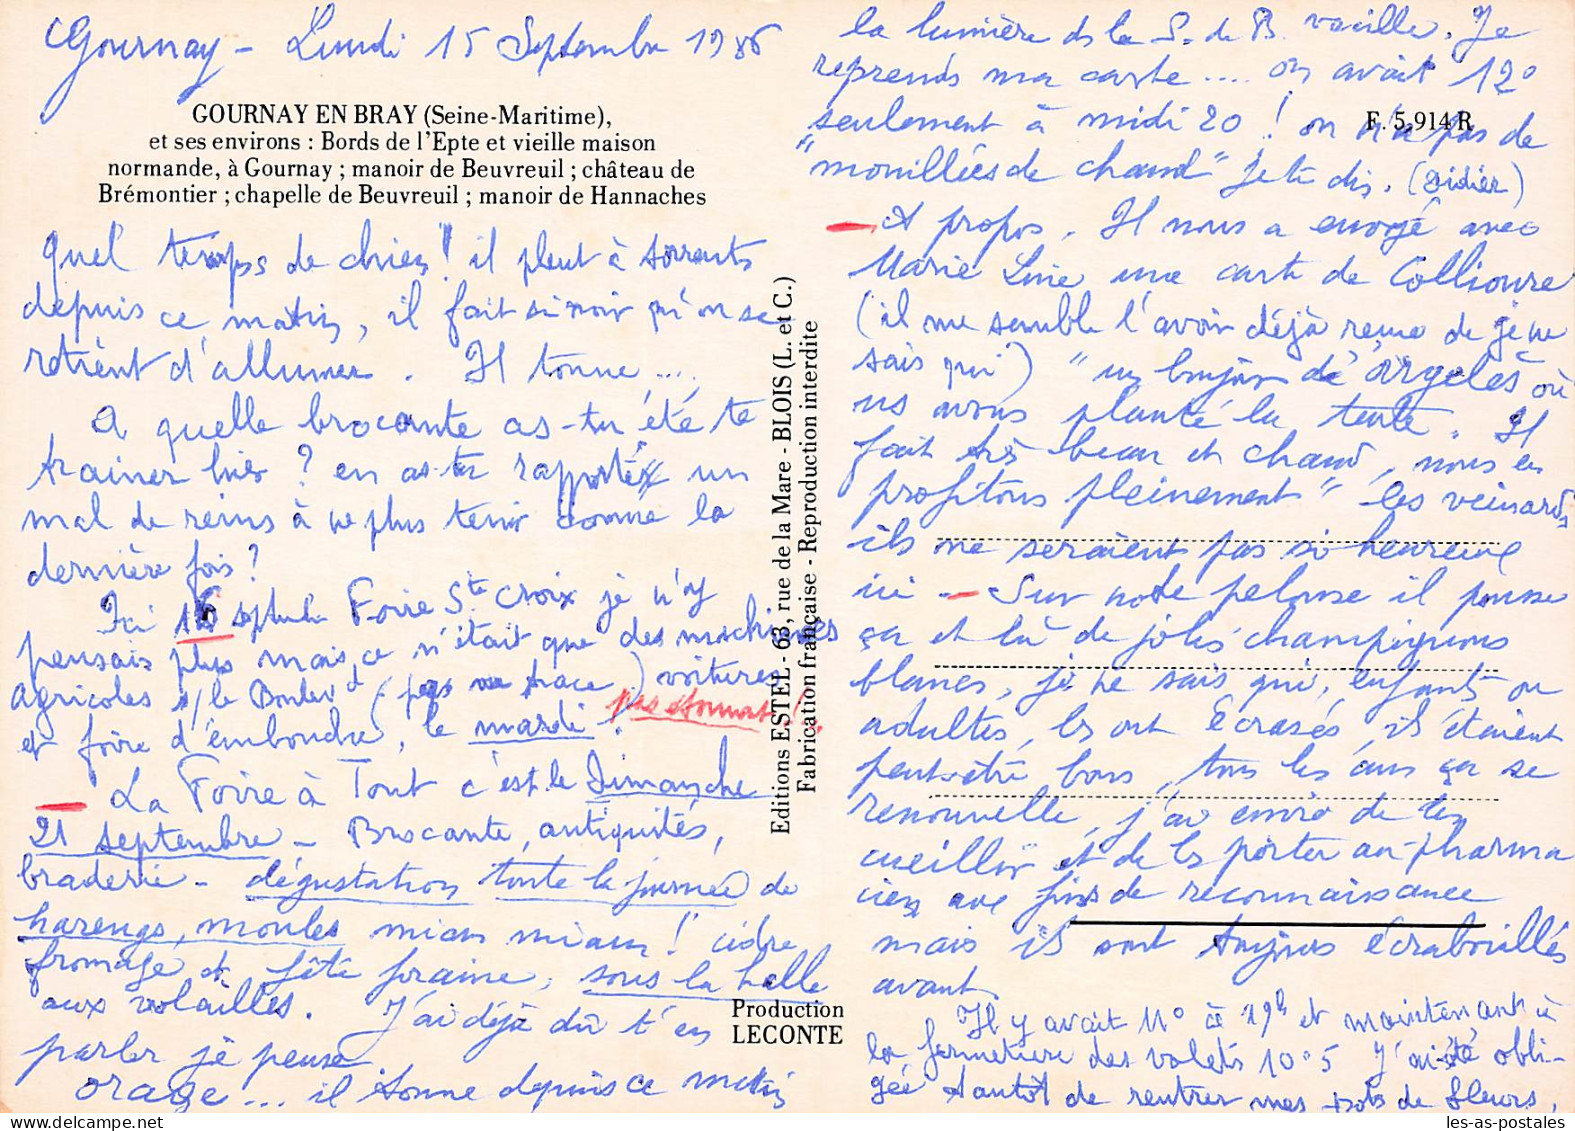 Gournay - Lundi 15 Septembre 1986
GOURNAY EN BRAY (Seine-Maritime),
et ses environs : Bords de l'Epte et vieille maison
normande, à Gournay ; manoir de Beuvreuil ; château de
Brémontier ; chapelle de Beuvreuil ; manoir de Hannaches
Quel temps de chien ! il pleut à torrents
depuis ce matin, il fait si noir qu'on se
retient d'allumer. Il tonne ....
A quelle brocante as-tu été te
trainer hier ? en as-tu rapporté un
mal de reins à ne plus tenir comme la
dernière fois ?
Ici 16 septembre Foire Ste Croix je n'y
pensais plus mais ce n'était que des machines
agricoles s/ le Boulevd (pas une trace) voitures
et foire d'embouche, le mardi ! pas étonnant !!
- La Foire à Tout c'est le Dimanche
21 septembre - Brocante, antiquités,
braderie - dégustation toute la journée de
harengs, moules miam miam ! cidre
fromage et fête foraine, sous la halle
aux volailles. J'ai déjà dû t'en
parler je pense
orage ... il tonne depuis ce matin
Editions ESTEL - 63, rue de la Mare - BLOIS (L. et C.)
Fabrication française - Reproduction interdite
Production
LECONTE
la lumière ds la S. de B. vacille. Je
reprends ma carte .... on avait 12°
F. 5.914 R
seulement à midi 20 ! on n'a pas de
"mouillées de chaud" je te dis. (Didier)
- A propos. Il nous a envoyé avec
Marie Line une carte de Collioure
(il me semble l'avoir déjà reçue de je ne
sais qui) "un bonjour de Argelès où
ns avons planté la tente. Il
fait très beau et chaud, nous en
profitons pleinement" les veinards
ils ne seraient pas si heureux
ici - Sur notre pelouse il pousse
ça et là de jolis champignons
blancs, je ne sais qui, enfants ou
adultes, les ont écrasés, ils étaient
peut-être bons, tous les ans ça se
renouvelle, j'ai envie de les
cueillir et de les porter au pharma
cien aux fins de reconnaissance
mais ils sont toujours écrabouillés
avant.
Il y avait 11° à 19h et maintenant à
la fermeture des volets 10°5 J'ai été obli-
gée tantôt de rentrer mes pots de fleurs,
les-as-postales